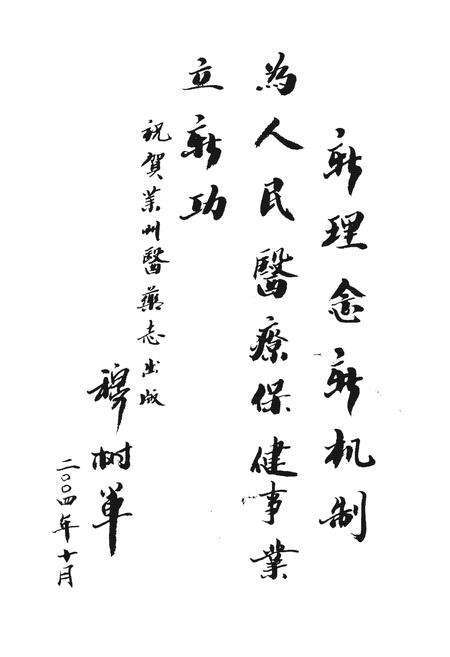 新理念新机制
為人民醫療保健事業
立新功
祝賀業州醫藥志出版
穆树军
二〇〇四年十月